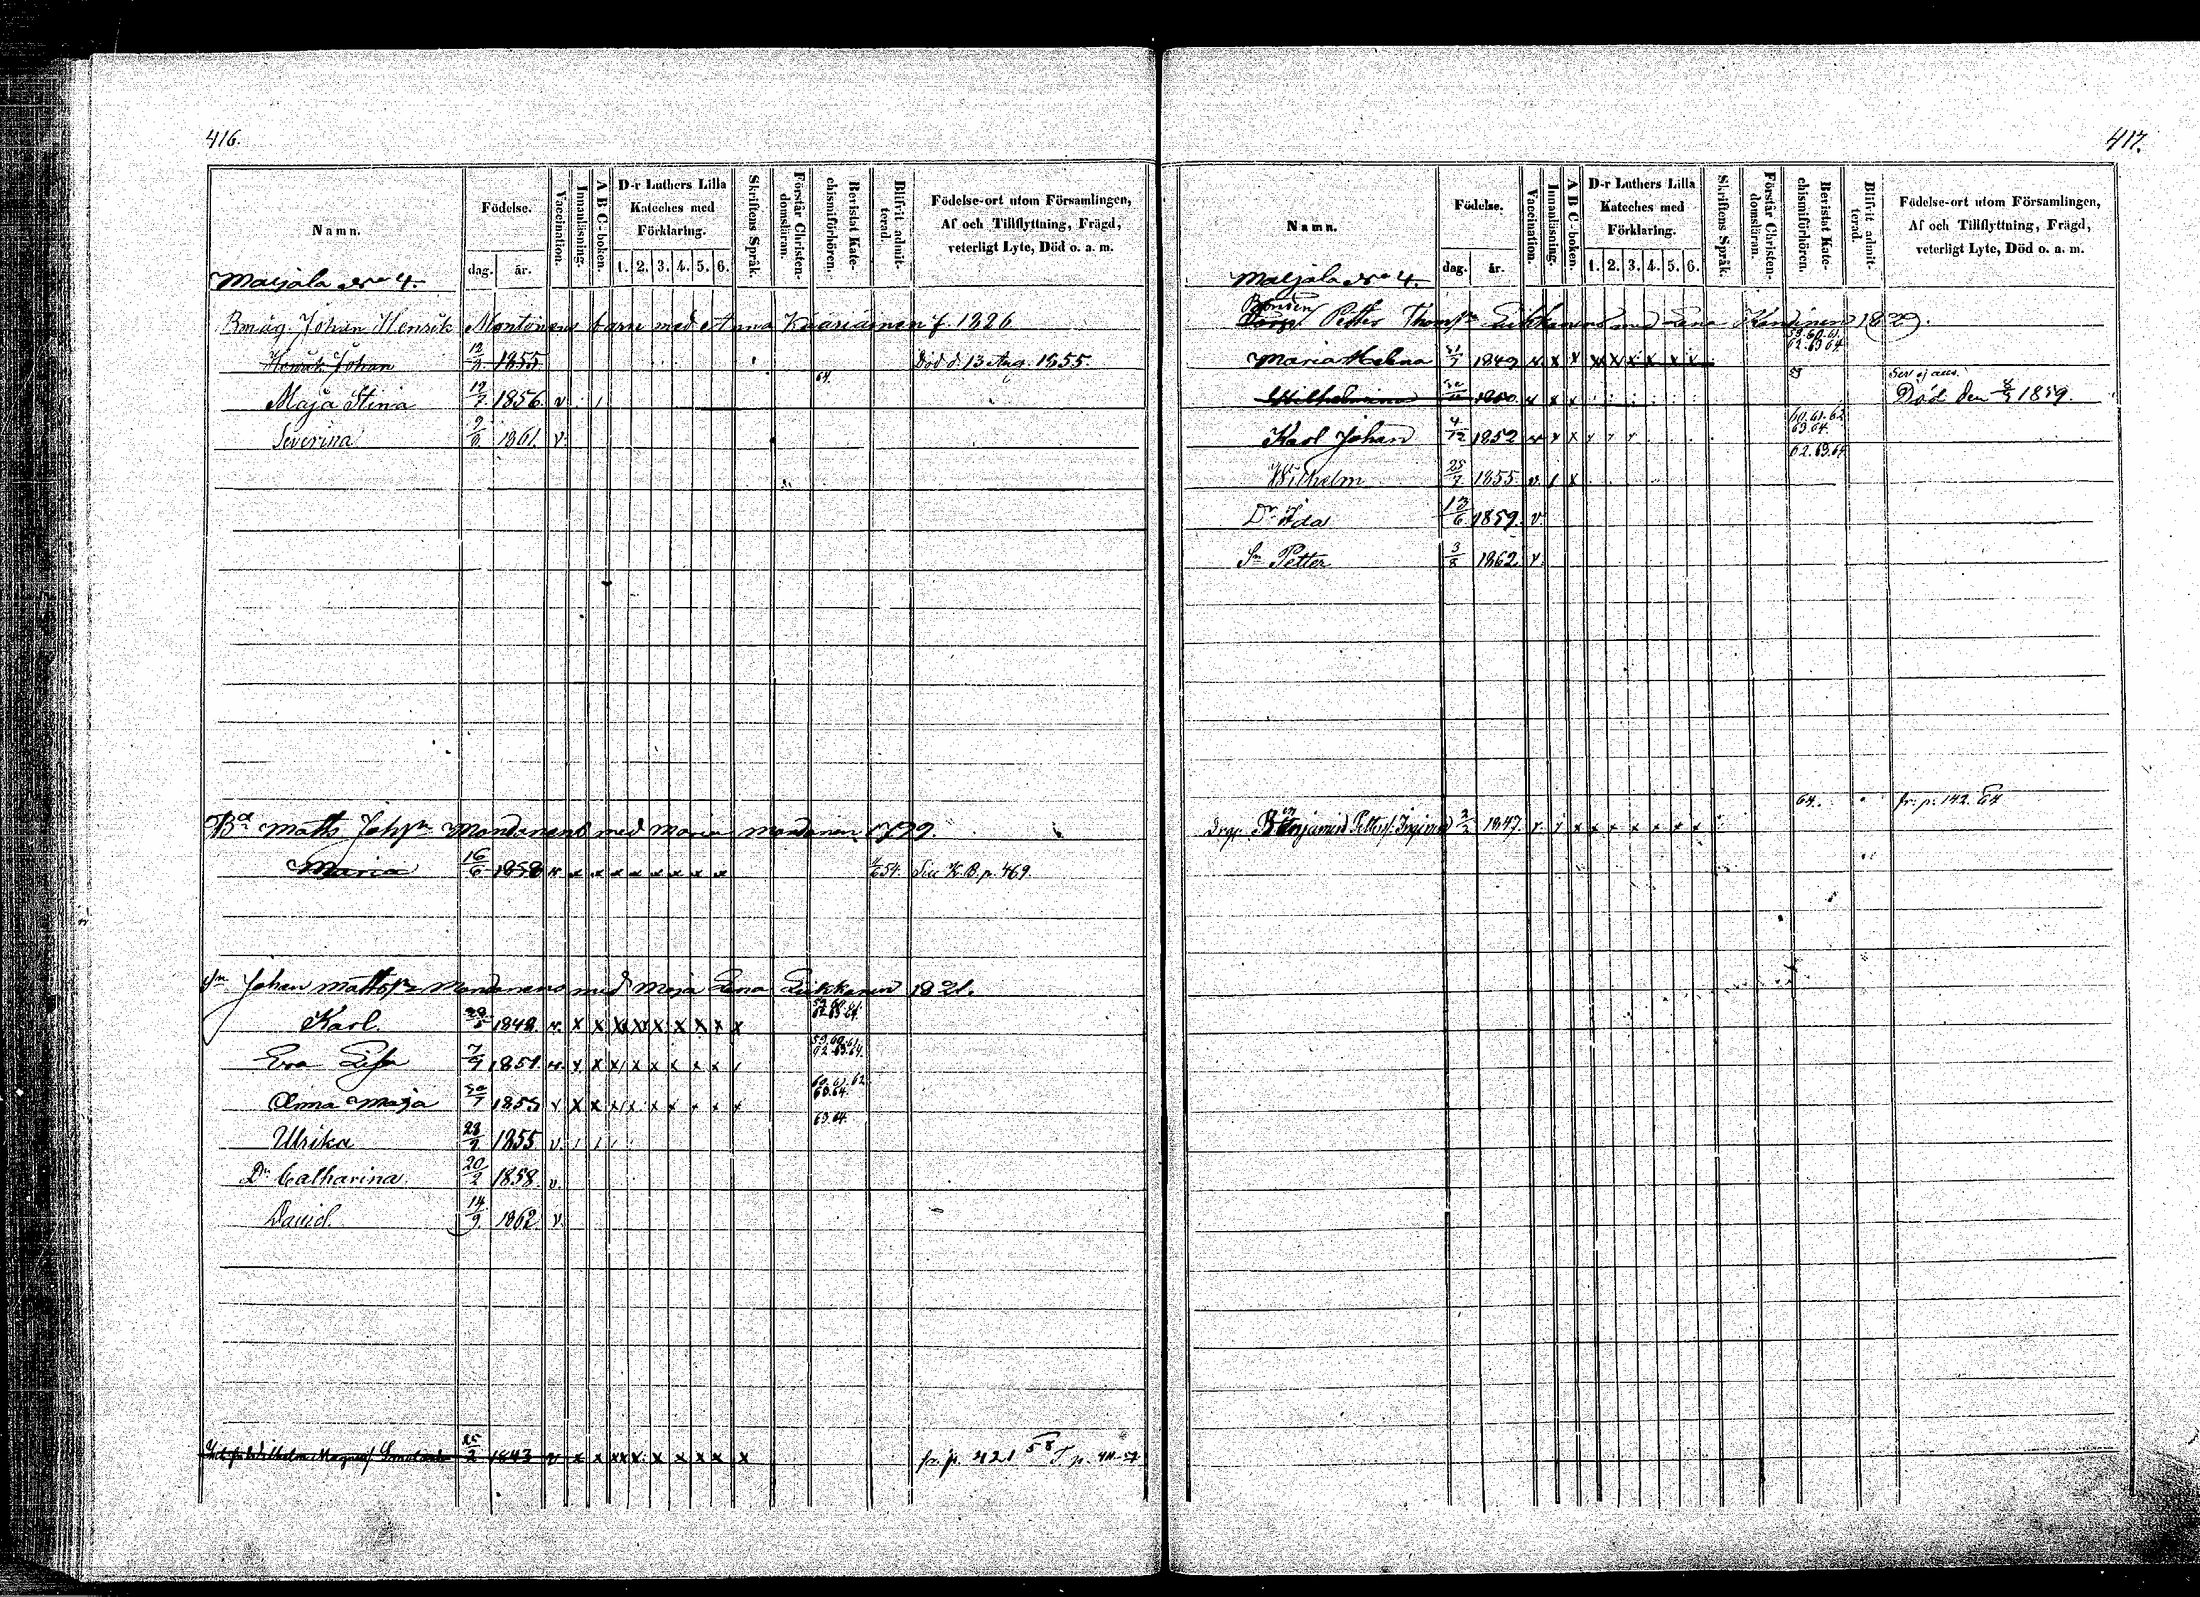 416.
Namn.
Födelse.
dag. år.
Vaccination.
Innanläsning.
A B C-boken.
D-r Luthers Lilla Kateches med Förklaring.
1. 2. 3. 4. 5. 6.
Skriftens Språk.
Förstår Christendomsläran.
Bevistat Katechismiförhören.
Blifvit admitterad.
Födelse-ort utom Församlingen, Af och Tillflyttning, Frägd, veterligt Lyte, Död o. a. m.
Maijala No 4.
Bmåg. Johan Henrik Montonens barn med Anna Kääriäinen f. 1826
Henrik Johan 12/2 1855 Död d. 13 Aug. 1855.
64.
Maja Stina 12/7 1856 v
Severina 9/6 1861. v.
Bd Matts Johsn Mondanens med Maria Mondanen 1799.
Maria 16/6 1838 v x x x x x x x x 54. Sec K. B. p. 469.
Sn Johan Mattsn Mondanens med Maja Lena Lukkanen 1821.
59. 60. 61. 62. 63. 64.
Karl 1848 v. x x x x x x x x x
59. 60. 61. 62. 63. 64.
Eva Lisa 7/9 1851 v. x x x x x x x x
60. 61. 62. 63. 64.
Anna Maja 30/7 1853 v x x x x x x x x x
63. 64.
Ulrika 23/9 1855 v.
Dr Catharina 20/2 1858 v.
David. 14/9 1862 v.
Wilhelm 25/2 1843 v x x x x x x x x x fr. p. 421 58 T. p.
417.
Namn.
Födelse.
dag. år.
Vaccination.
Innanläsning.
A B C-boken.
D-r Luthers Lilla Kateches med Förklaring.
1. 2. 3. 4. 5. 6.
Skriftens Språk.
Förstår Christendomsläran.
Bevistat Katechismiförhören.
Blifvit admitterad.
Födelse-ort utom Församlingen, Af och Tillflyttning, Frägd, veterligt Lyte, Död o. a. m.
Maijala No 4.
Bonden Petter Thomsn Lukkanens med Lena 1829.
59. 60. 61. 62. 63. 64.
Maria Helena 31/7 1849 v. x x x x x x x x
Wilhelmina 1850. v x x Död den 1859.
60. 61. 62. 63. 64.
Karl Johan 4/12 1852 v x x x x x
62. 63. 64.
Wilhelm 25/7 1855 v. x
Dr Ida 12/6 1859. v.
Sn Petter 3/8 1862 v.
64. fr. p. 142. 64
Benjamin Petters. 2/2 1847. v. x x x x x x x x